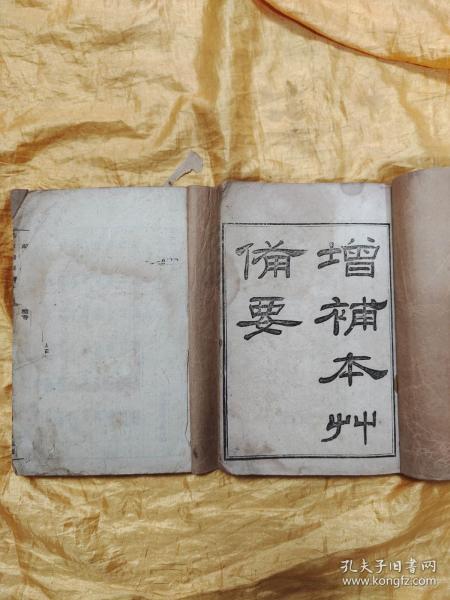 增補本艸
備要
孔夫子旧书网
www.kongfz.com